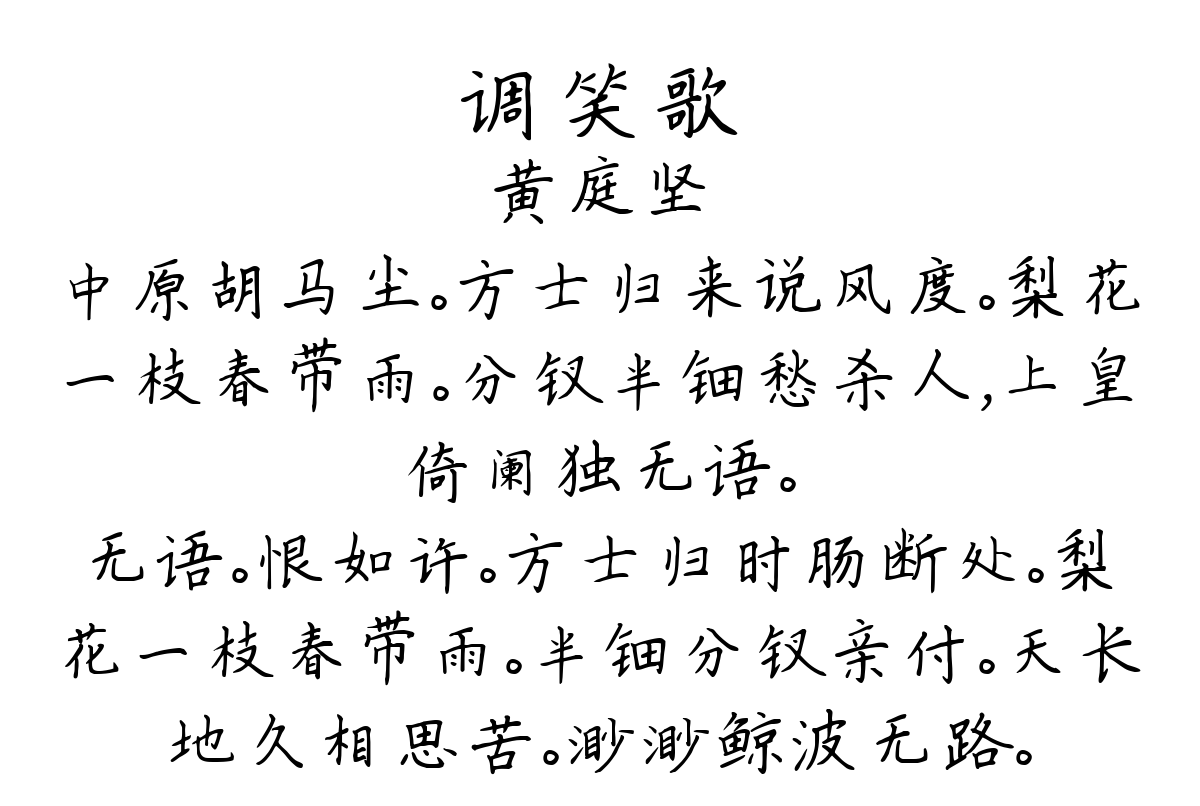 调笑歌
黄庭坚
中原胡马尘。方士归来说风度。梨花
一枝春带雨。分钗半钿愁杀人,上皇
倚阑独无语。
无语。恨如许。方士归时肠断处。梨
花一枝春带雨。半钿分钗亲付。天长
地久相思苦。渺渺鲸波无路。